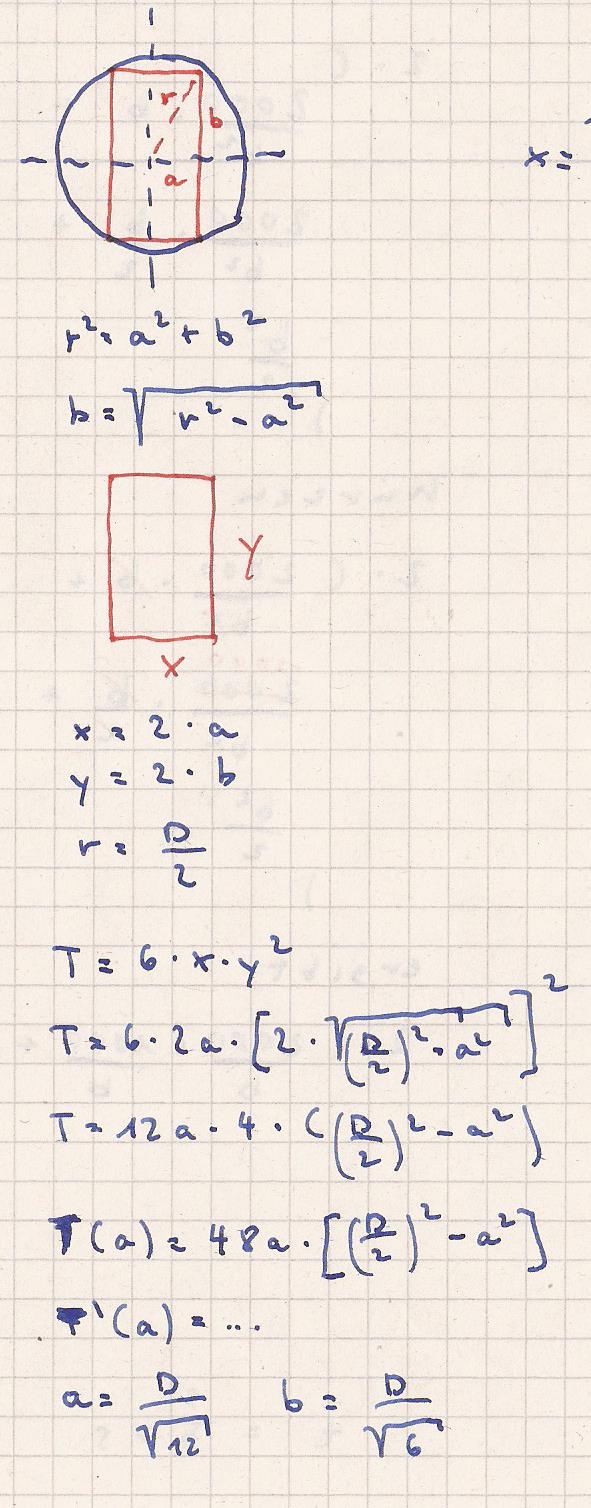 r
b
a
x =
r² = a² + b²
b = √(r² - a²)
y
x
x = 2 · a
y = 2 · b
r = D/2
T = 6 · x · y²
T = 6 · 2a · [2 · √((D/2)² - a²)]²
T = 12a · 4 · ((D/2)² - a²)
T(a) = 48a · [(D/2)² - a²]
T'(a) = ...
a = D/√12   b = D/√6